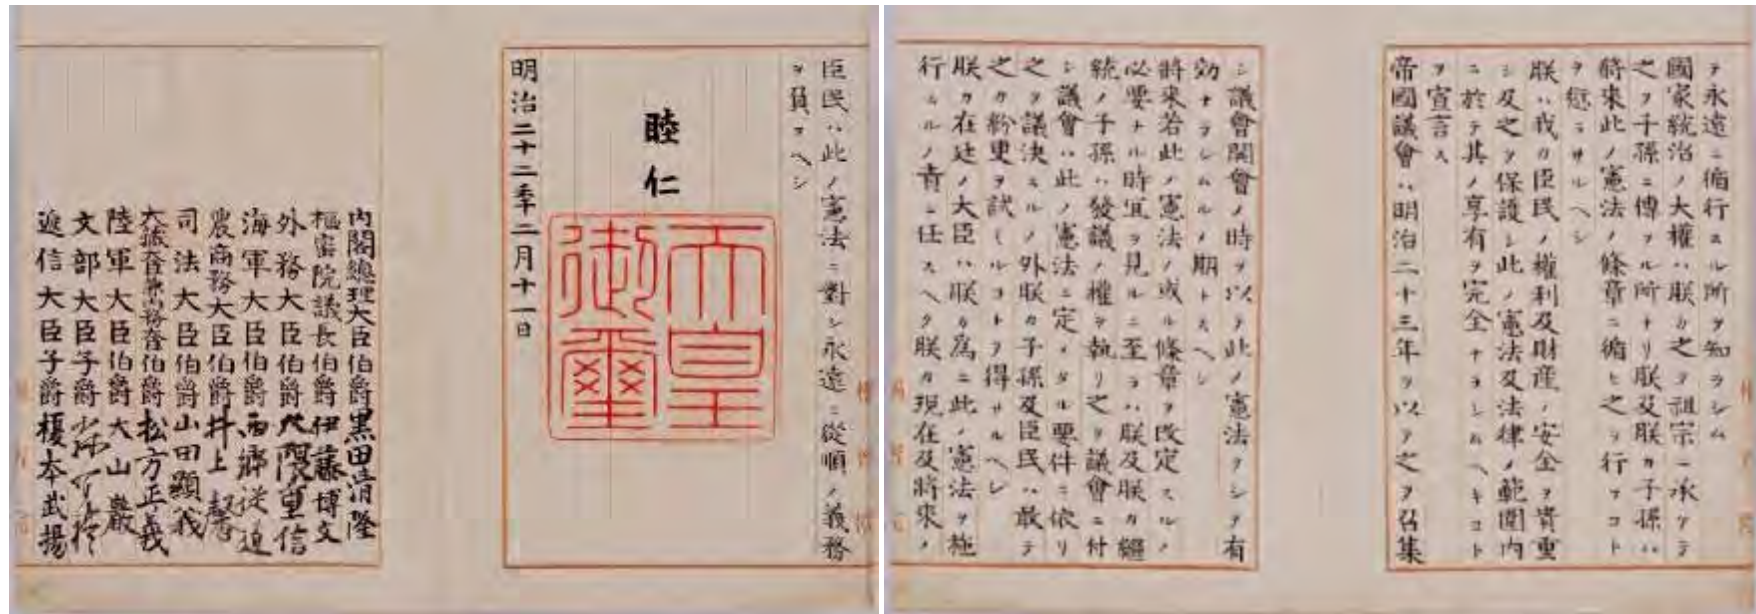 テ永遠ニ循行スル所ヲ知ラシム
國家統治ノ大權ハ朕カ之ヲ祖宗ニ承ケテ
之ヲ子孫ニ傳フル所ナリ朕及朕カ子孫ハ
將來此ノ憲法ノ條章ニ循ヒ之ヲ行フコト
ヲ愆ラサルヘシ
朕ハ我カ臣民ノ權利及財産ノ安全ヲ貴重
シ及之ヲ保護シ此ノ憲法及法律ノ範圍内
ニ於テ其ノ享有ヲ完全ナラシムヘキコト
ヲ宣言ス
帝國議會ハ明治二十三年ヲ以テ之ヲ召集
シ議會開會ノ時ヲ以テ此ノ憲法ヲシテ有
効ナラシムルノ期トスヘシ
將來若此ノ憲法ノ或ル條章ヲ改定スルノ
必要ナル時宜ヲ見ルニ至ラハ朕及朕カ繼
統ノ子孫ハ發議ノ權ヲ執リ之ヲ議會ニ付
シ議會ハ此ノ憲法ニ定メタル要件ニ依リ
之ヲ議決スルノ外朕カ子孫及臣民ハ敢テ
之カ紛更ヲ試ミルコトヲ得サルヘシ
朕カ在廷ノ大臣ハ朕カ爲ニ此ノ憲法ヲ施
行スルノ責ニ任スヘク朕カ現在及將來ノ
臣民ハ此ノ憲法ニ對シ永遠ニ從順ノ義務
ヲ負フヘシ
睦仁
天皇
御璽
明治二十二年二月十一日
内閣總理大臣伯爵黒田清隆
樞密院議長伯爵伊藤博文
外務大臣伯爵大隈重信
海軍大臣伯爵西郷従道
農商務大臣伯爵井上馨
司法大臣伯爵山田顯義
大藏大臣兼内務大臣伯爵松方正義
陸軍大臣伯爵大山巌
文部大臣子爵
遞信大臣子爵榎本武揚